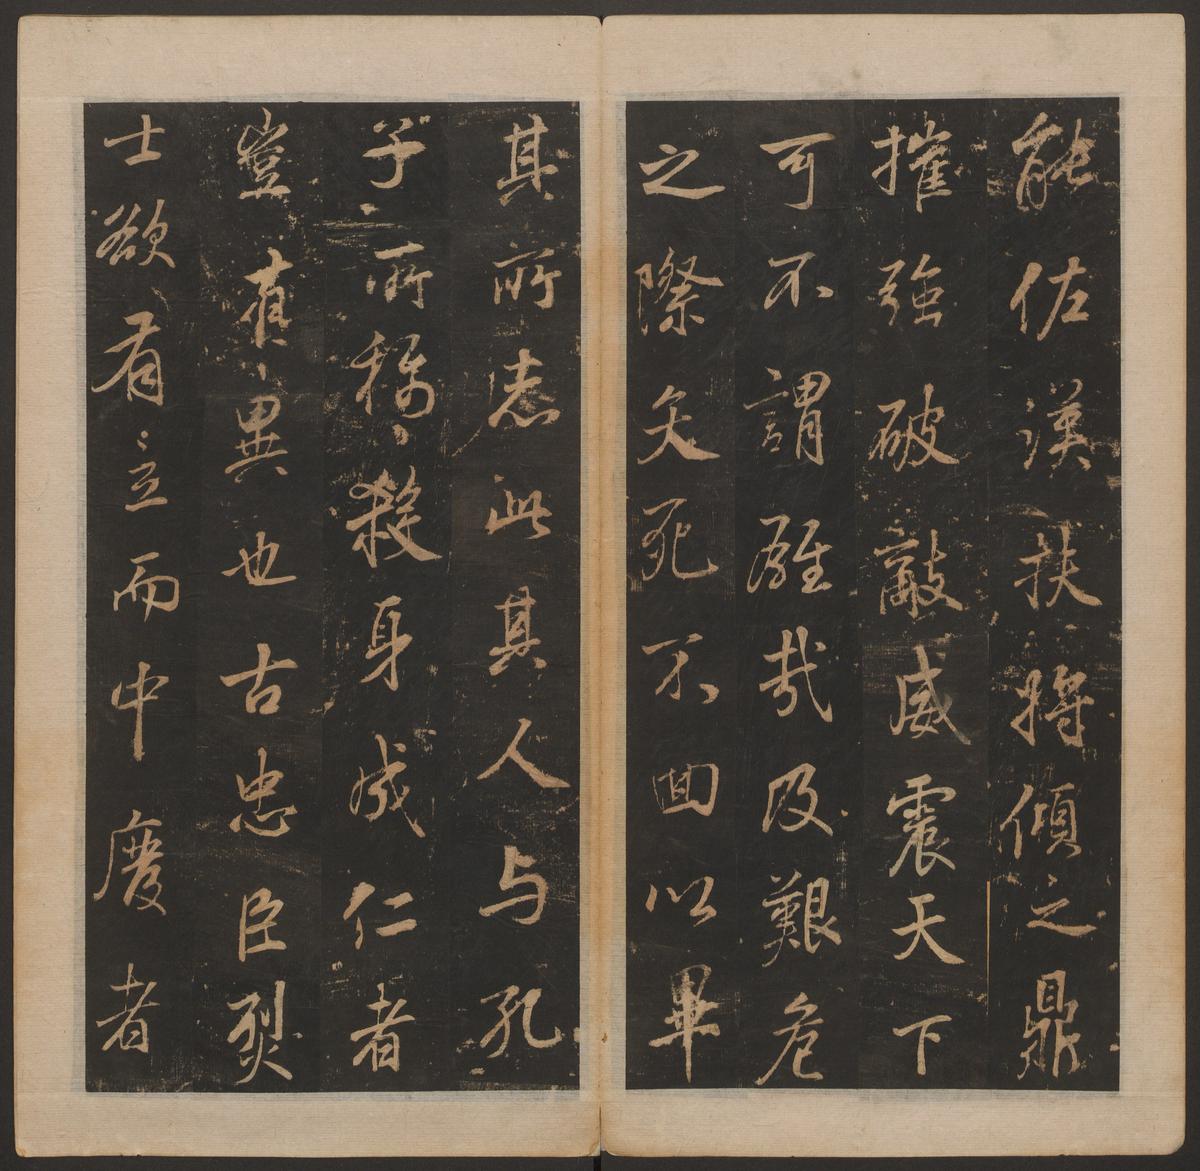 能佐漢扶將傾之鼎
摧強破敵威震天下
可不謂雄哉及艱危
之際矢死不回以畢
其所志此其人与孔
子所稱殺身成仁者
豈有異也古忠臣烈
士欲有立而中廢者